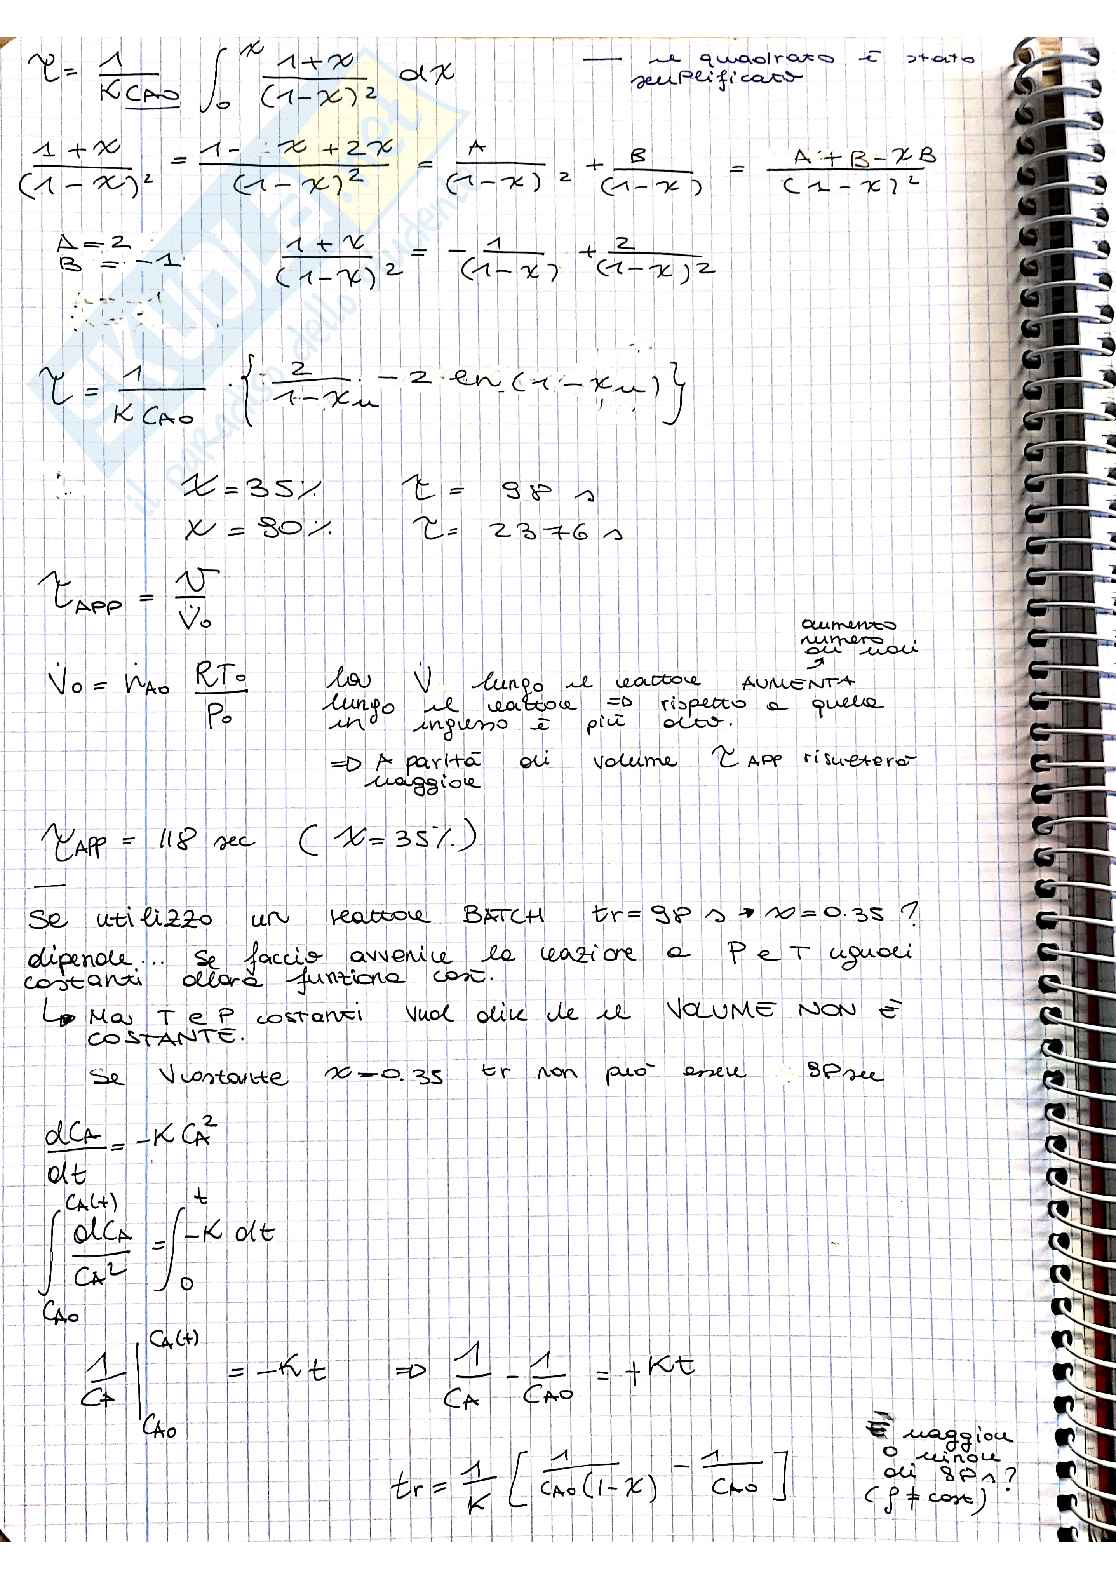 τ = 1/(K CA0) ∫₀ˣ (1+x)/(1-x)² dx — il quadrato è stato
semplificato
(1+x)/(1-x)² = (1-x+2x)/(1-x)² = A/(1-x)² + B/(1-x) = (A+B-xB)/(1-x)²
A = 2
B = -1
(1+x)/(1-x)² = -1/(1-x) + 2/(1-x)²
τ = 1/(K CA0) · { 2/(1-xu) - 2 ln(1-xu) }
x = 35% τ = 98 s
x = 90% τ = 2376 s
τAPP = V/V̇0
aumento
numero
di moli
V̇0 = ṅA0 RT0/P0
la V̇ lungo il reattore AUMENTA
lungo il reattore ⇒ rispetto a quella
in ingresso è più alto.
⇒ A parità di volume τAPP risulterà
maggiore
τAPP = 118 sec (x = 35%)
Se utilizzo un reattore BATCH tr = 98 s → x = 0.35 ?
dipende... se faccio avvenire la reazione a P e T uguali
costanti allora funziona così.
↳ Ma T e P costanti vuol dire che il VOLUME NON È
COSTANTE.
Se V costante x = 0.35 tr non può essere 98 sec
dCA/dt = -K CA²
∫_CA0^CA(t) dCA/CA² = ∫₀ᵗ -K dt
1/CA |_CA0^CA(t) = -Kt ⇒ 1/CA - 1/CA0 = +Kt
tr = 1/K [ 1/(CA0(1-x)) - 1/CA0 ]
È maggiore
o minore
di 98 s ?
(ρ ≠ cost)
il paradiso dello studente